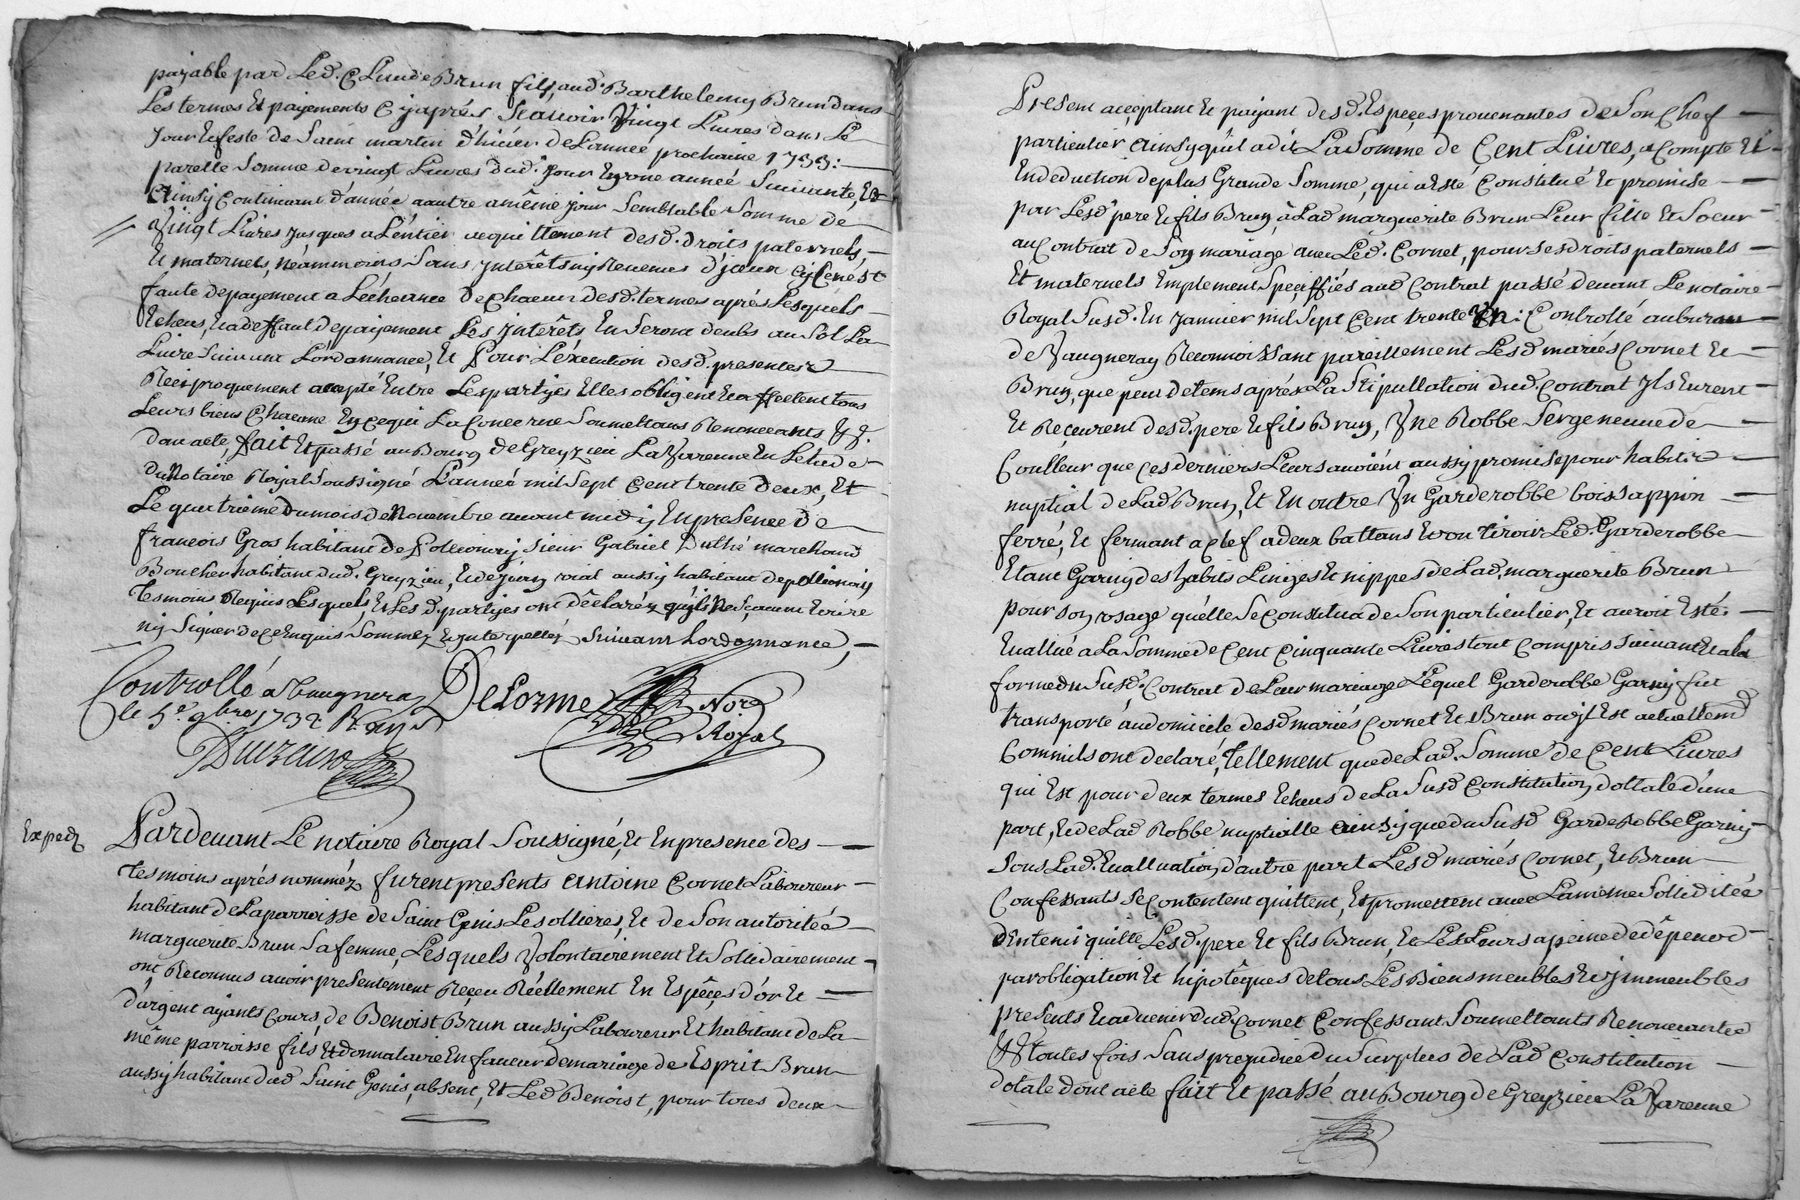 payable par Led. Claude Brun fils, aud. Barthelemy Brun dans
Les termes Et payements Cy aprés Scauoir Vingt Liures dans Le
Jour Et feste de Saint martin d'hiuer de Lannée prochaine 1733:
pareille Somme de vingt Liures dud. Jour En une année Suivante, Et
Ainsy Continuant d'année a autre a même jour Semblable Somme de
Vingt Liures Jusques a L'entier acquittement desd. droits paternels,
Et maternels, Néammoins Sans Interêts ny Reuenus d'jceux sy Ce n'est
faute de payement a Lécheance de Chacun desd. termes aprés Lesquels
Echeus, Et a deffaut de payement Les Jnterêts En Seront deubs au Sol La
Liure Suiuant L'ordonnance, Et Pour L'éxécution desd. presentes
Reciproquement accepté Entre Les partyes Elles obligent Et affectent tous
Leurs biens Chacune En ce qui La Concerne Soumettans Renonceants &&.
dont acte, fait Et passé au Bourg de Greyzieu La Varenne En Letude
du Notaire Royal Soussigné L'année mil Sept Cent trente Deux, Et
Le quatrieme du mois de Nouembre auant midy En presence de
francois Gros habitant de Pollionnay Sieur Gabriel Duthé marchand
Boucher habitant dud. Greyzieu, Et de Jean rat aussy habitant de pollionay
Tesmoins Requis Lesquels, Et Les d. partyes ont déclaréz qu'ils Ne Scauent Ecrire
ny Signer de ce Enquis Sommez Et Interpellés Suiuant Lordonnance,
Controllé a Vaugneray
le 5e. 9bre 1732
DeLorme Nore
Royal
Exped
Pardeuant Le notaire Royal Soussigné, Et En presence des
Tesmoins aprés nommés furent presents Antoine Cornet Laboureur
habitant de La parroisse de Saint Genis Les ollieres, Et de Son autorité
marguerite Brun Sa femme, Lesquels Volontairement Et Sollidairement
ont Reconnus auoir presentement Reçeu Réellement En Espêçes d'or Et
d'argent ayants Cours, de Benoist Brun aussy Laboureur Et habitant de La
même parroisse fils Et donnataire En faueur de mariage de Esprit Brun
aussy habitant dud Saint Genis, absent, Et Led Benoist, pour tous deux
Present acceptant Et payant desd. Espeçes prouenantes de Son Chef
particulier Ainsy qu'il a dit La Somme de Cent Liures, a Compte Et
En deduction de plus Grande Somme, qui a Esté Constitué Et promise
par Lesd. pere Et fils Brun, à Lad marguerite Brun Leur fille Et Soeur
au Contrat de Son mariage auec Led. Cornet, pour Ses droits paternels
Et maternels Emplement Speçiffiés aud Contrat passé deuant Le notaire
Royal Susd. En Januier mil Sept Cent trente Un: Controllé au bureau
de Vaugneray Reconnoissant pareillement Lesd mariés Cornet Et
Brun, que peu de tems aprés La Stipullation dud. Contrat Jls Eurent
Et Reçeurent desd. pere Et fils Brun, Vne Robbe Serge neuue de
Coulleur que Ces derniers Leurs auoient aussy promise pour habit
nuptial de Lad Brun, Et En outre Vn Garderobbe bois Sappin
ferré, Et fermant a Clef a deux battans Et un tiroir Led. Garderobbe
Etant Garny des habits Linges Et nippes de Lad. marguerite Brun
pour Son vsage qu'elle Se Constitua de Son particulier, Et auroit Esté
Euallué a La Somme de Cent Cinquante Liures tout Compris Suiuant Et a la
forme du Susd. Contrat de Leur mariage Lequel Garderobbe Garny fut
transporté au domicile desd mariés Cornet Et Brun ou jl Est actuellemt
Comm'ils ont declaré, Tellement que de Lad. Somme de Cent Liures
qui Est pour deux termes Echeus de La Susd Constitution dottale d'une
part, Et de Lad Robbe nuptialle Ainsy que du Susd Garderobbe Garny
Sous Lad. Euallüation d'autre part Lesd mariés Cornet, Et Brun
Confessants Se Contentent quittent, Et promettent auec La même Sollidité
d'En tenir quitte Lesd. pere Et fils Brun, Et Les Leurs a peine de dêpens
par obligation Et hipotêques de tous Les Biens meubles Et jmmeubles
presents Et aduenir dud Cornet Confessant Soumettants Renonceants
&& toutes fois Sans prejudice du Surplus de Lad Constitution
dotale dont acte fait Et passé au Bourg de Greyzieu La Varenne